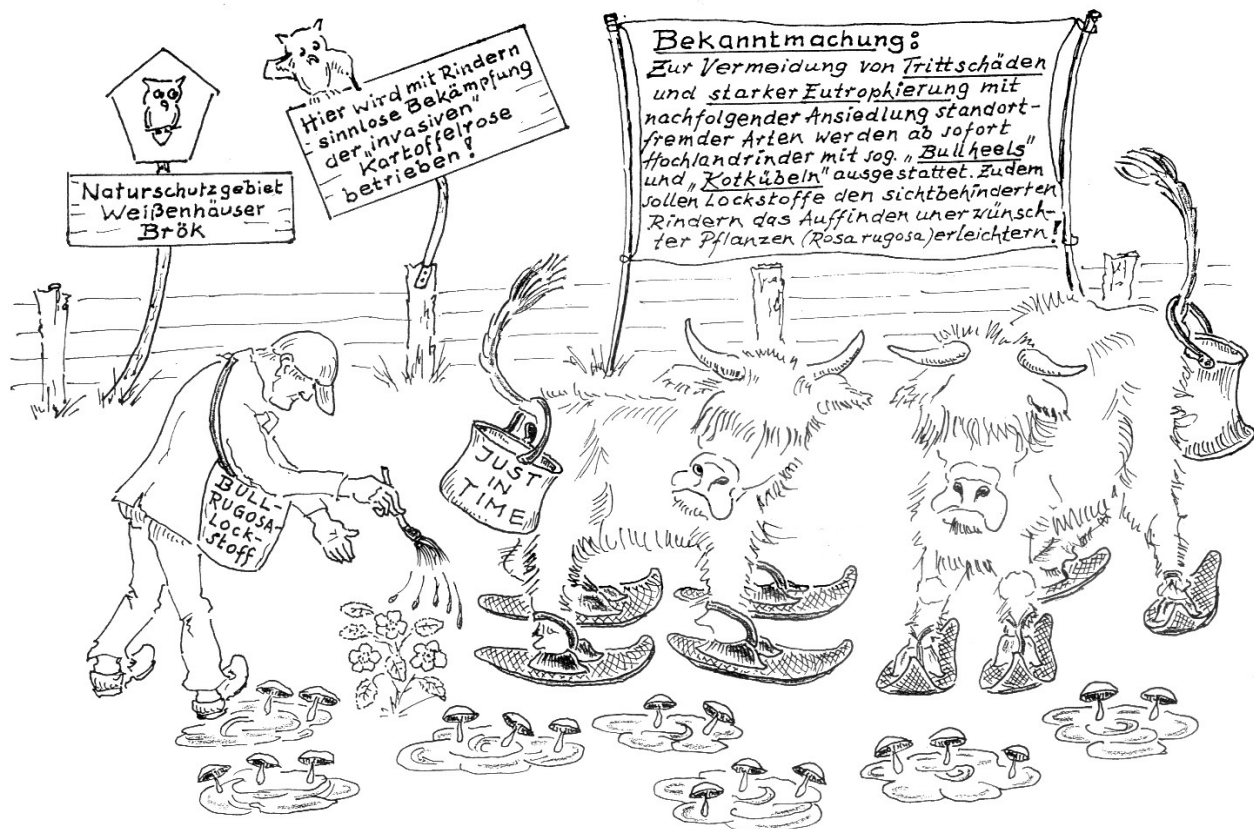 Naturschutzgebiet
Weißenhäuser
Brök
Hier wird mit Rindern
sinnlose Bekämpfung
der „invasiven"
Kartoffelrose
betrieben!
Bekanntmachung:
Zur Vermeidung von Trittschäden
und starker Eutrophierung mit
nachfolgender Ansiedlung standort-
fremder Arten werden ab sofort
Hochlandrinder mit sog. „Bullheels"
und „Kotkübeln" ausgestattet. Zudem
sollen Lockstoffe den sichtbehinderten
Rindern das Auffinden unerwünsch-
ter Pflanzen (Rosa rugosa) erleichtern!
BULL-
RUGOSA-
Lock-
stoff
JUST
IN
TIME